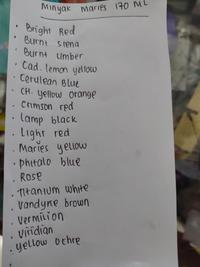 Minyak Maries 170 ML
• Bright Red
• Burnt Siena
• Burnt Umber
• Cad. lemon yellow
• Cerulean Blue
• CH. yellow orange
• Crimson red
• lamp black
• Light red
• Maries yellow
• phitalo blue
• Rose
• Titanium white
• Vandyke brown
• Vermilion
• Viridian
• yellow ochre
•